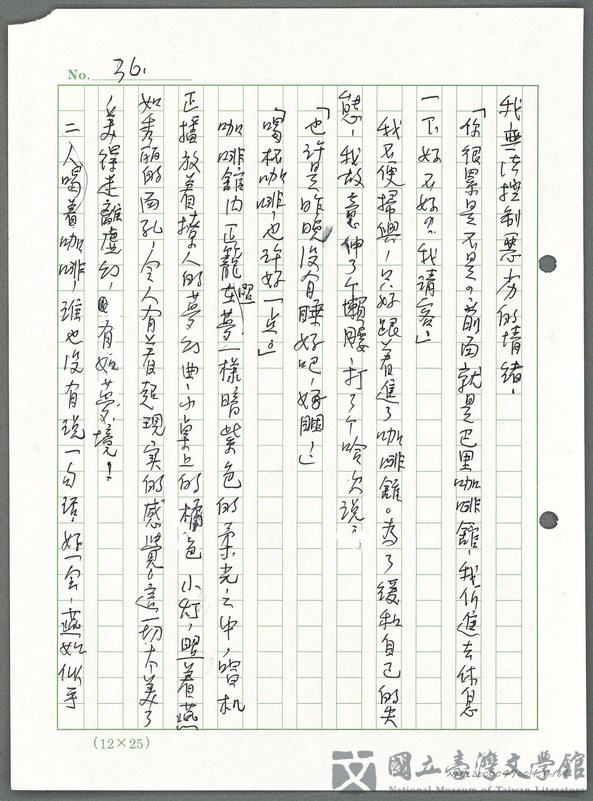 No. 36.
我無法控制惡劣的情緒,
「你很累是不是?前面就是巴里咖啡館,我们進去休息
一下好不好?我請客!」
我不便掃興,只好跟着進了咖啡館。為了緩和自己的失
態,我故意伸了个懶腰,打了个哈欠說:
「也許是昨晚沒有睡好吧,好睏!」
「喝杯咖啡,也許好一点。」
咖啡館内正籠罩夢一樣暗紫色的柔光之中,唱机
正播放着撩人的夢幻曲,小桌上的橘色小灯,照着燕
如秀丽的面孔,令人有着超現实的感覺。這一切太美了
,美得走離虛幻,有如夢境!
二人喝着咖啡,誰也沒有說一句话,好一会,燕如似乎
(12×25)
國立臺灣文學館
National Museum of Taiwan Literature